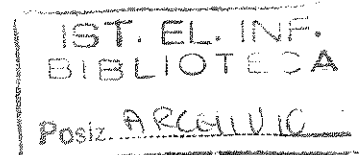 IST. EL. INF.
BIBLIOTECA
Posiz. ARCHIVIO